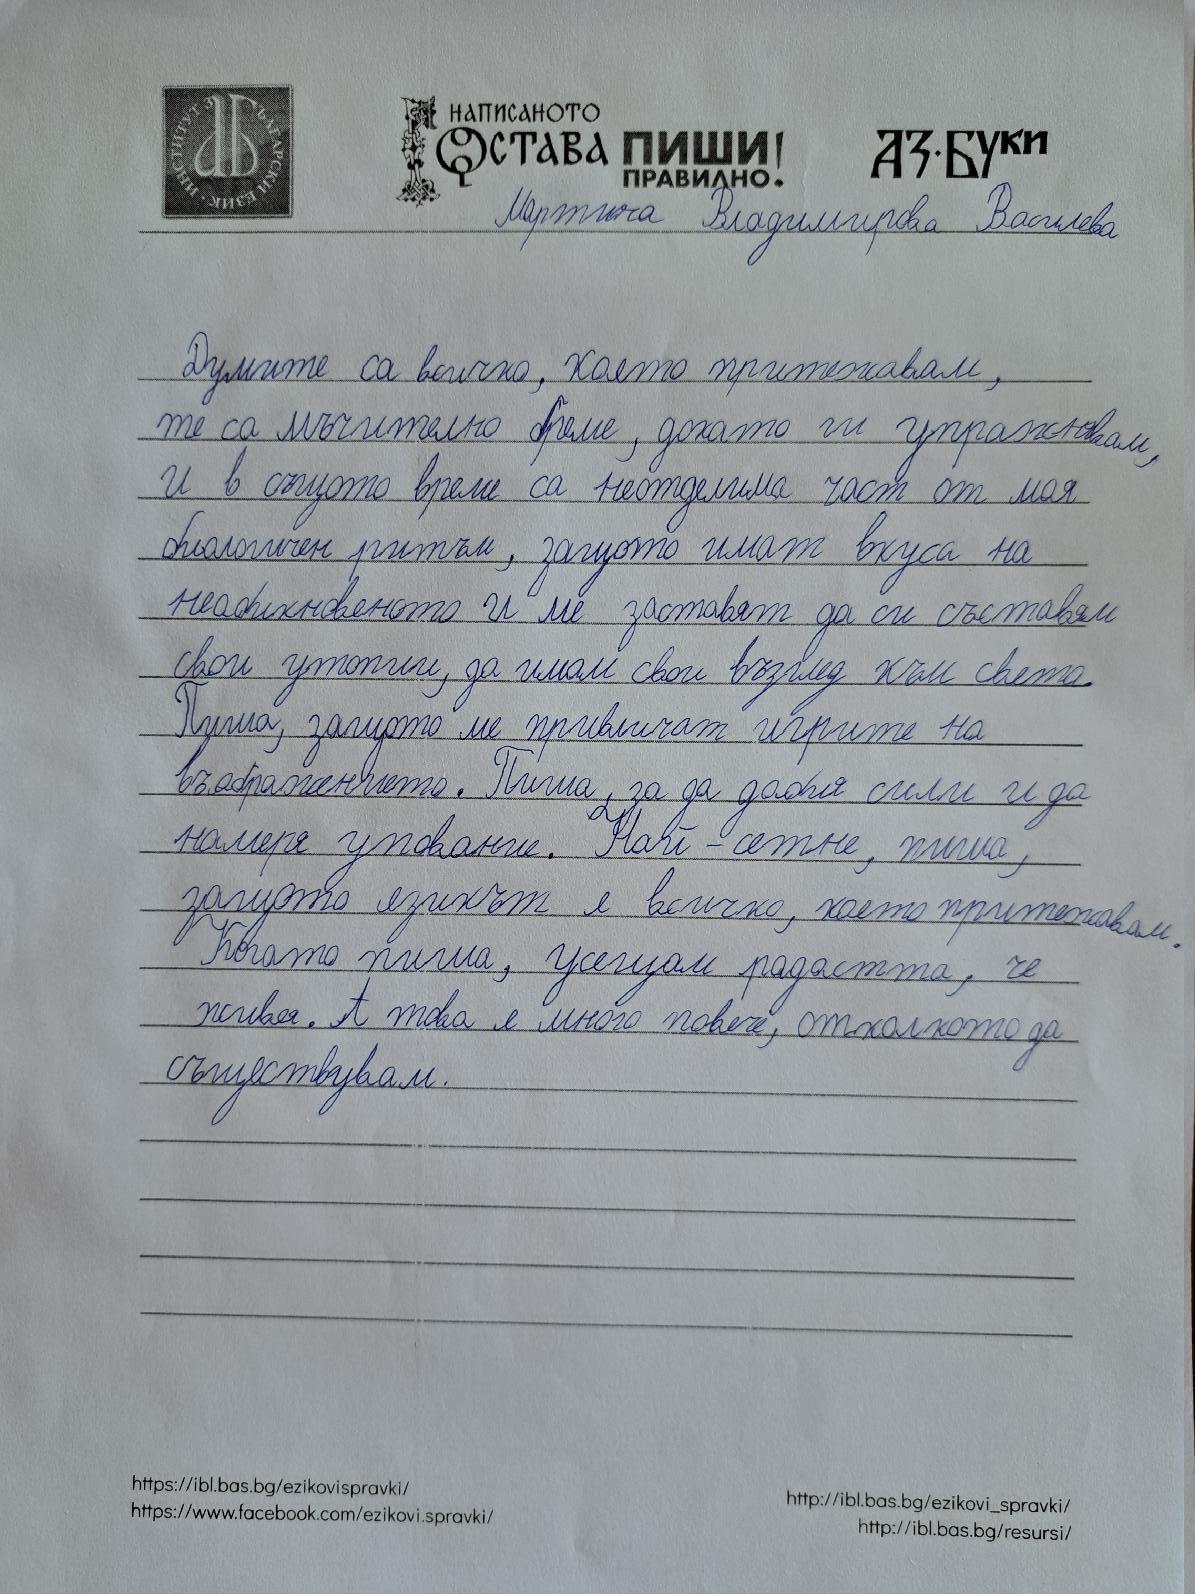 ИНСТИТУТ ЗА БЪЛГАРСКИ ЕЗИК
НАПИСАНОТО
ОСТАВА ПИШИ!
ПРАВИЛНО.
АЗ·БУКИ
Мартина Владимирова Василева
Думите са всичко, което притежавам,
те са мъчително бреме, докато ги упражнявам,
и в същото време са неотделима част от моя
биологичен ритъм, защото имат вкуса на
необикновеното и ме заставят да си съставям
свои утопии, да имам свои възглед към света.
Пиша, защото ме привличат игрите на
въображението. Пиша, за да добия сили и да
намеря упование. Най-сетне, пиша,
защото езикът е всичко, което притежавам.
Когато пиша, усещам радостта, че
живея. А това е много повече, отколкото да
съществувам.
https://ibl.bas.bg/ezikovispravki/
https://www.facebook.com/ezikovi.spravki/
http://ibl.bas.bg/ezikovi_spravki/
http://ibl.bas.bg/resursi/